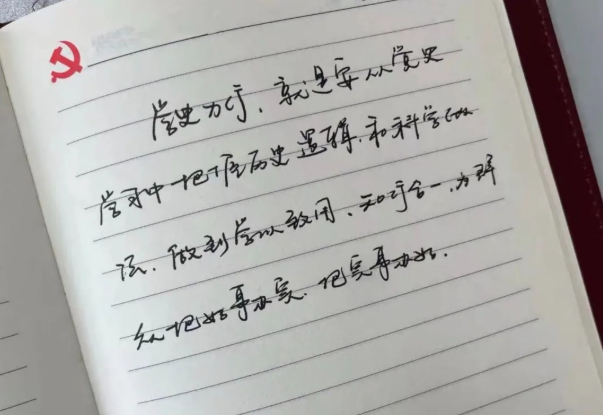 学史力行，就是要从党史
学习中把握历史逻辑，和科学做
法，做到学以致用，知行合一，为群
众把好事办实，把实事办好。